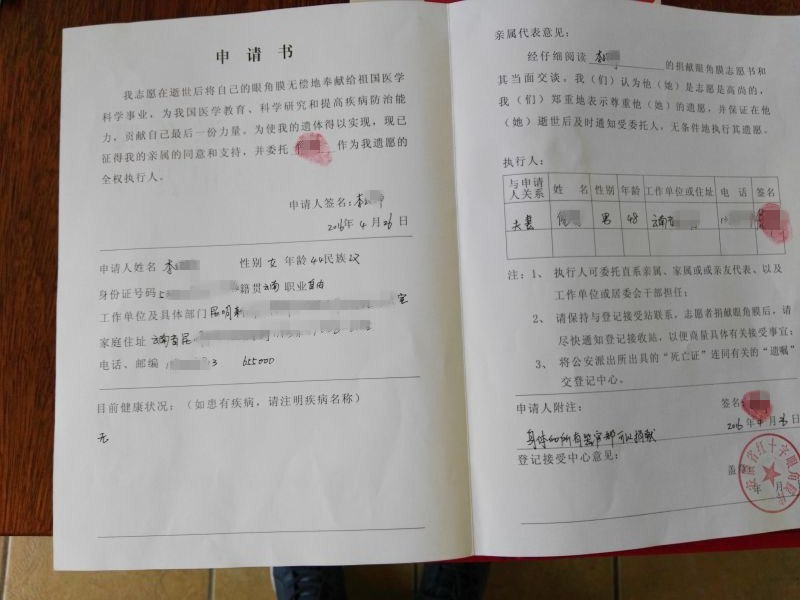 申请书
我志愿在逝世后将自己的眼角膜无偿地奉献给祖国医学
科学事业，为我国医学教育、科学研究和提高疾病防治能
力，贡献自己最后一份力量。为使我的遗体得以实现，现已
征得我的亲属的同意和支持，并委托 作为我遗愿的
全权执行人。
申请人签名：李
2016年4月26日
申请人姓名 李 性别 女 年龄 44 民族 汉
身份证号码 5 籍贯 云南 职业 自由
工作单位及具体部门 昆明 室
家庭住址 云南省昆
电话、邮编 1 3 655000
目前健康状况：（如患有疾病，请注明疾病名称）
无
亲属代表意见：
经仔细阅读 李 的捐献眼角膜志愿书和
其当面交谈。我（们）认为他（她）是志愿是高尚的，
我（们）郑重地表示尊重他（她）的遗愿，并保证在他
（她）逝世后及时通知受委托人，无条件地执行其遗愿。
执行人：
与申请人关系 姓名 性别 年龄 工作单位或住址 电话 签名
夫妻 男 48 云南省
注：1、执行人可委托直系亲属、家属或或亲友代表、以及
工作单位或居委会干部担任；
2、请保持与登记接受站联系，志愿者捐献眼角膜后，请
尽快通知登记接收站，以便商量具体有关接受事宜；
3、将公安派出所出具的“死亡证”连同有关的“遗嘱”
交登记中心。
申请人附注：
签名：
2016年4月26日
身体的所有器官都可以捐献
登记接受中心意见：
盖
年 月
省红十字眼角膜